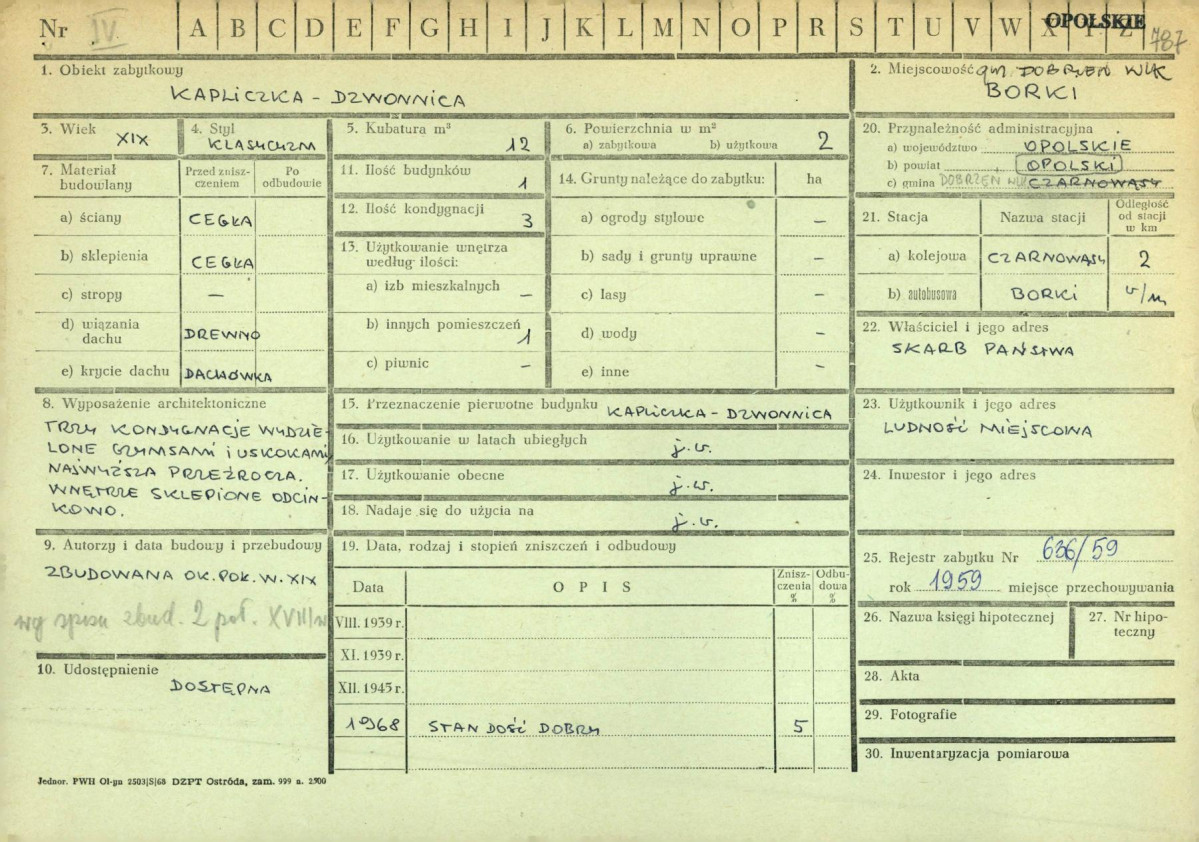 Nr IV A B C D E F G H I J K L M N O P R S T U V W X Y Z OPOLSKIE 787
1. Obiekt zabytkowy
KAPLICZKA - DZWONNICA
2. Miejscowość gm. DOBRZEŃ WLK
BORKI
3. Wiek XIX
4. Styl KLASYCYZM
5. Kubatura m³ 12
6. Powierzchnia w m²
a) zabytkowa b) użytkowa 2
20. Przynależność administracyjna
a) województwo OPOLSKIE
b) powiat OPOLSKI
c) gmina DOBRZEŃ WLK CZARNOWĄSY
7. Materiał budowlany
Przed zniszczeniem
Po odbudowie
a) ściany CEGŁA
b) sklepienia CEGŁA
c) stropy —
d) wiązania dachu DREWNO
e) krycie dachu DACHÓWKA
11. Ilość budynków 1
12. Ilość kondygnacji 3
13. Użytkowanie wnętrza
według ilości:
a) izb mieszkalnych —
b) innych pomieszczeń 1
c) piwnic —
14. Grunty należące do zabytku: ha
a) ogrody stylowe —
b) sady i grunty uprawne —
c) lasy —
d) wody —
e) inne —
21. Stacja Nazwa stacji Odległość od stacji w km
a) kolejowa CZARNOWĄSY 2
b) autobusowa BORKI v/m
22. Właściciel i jego adres
SKARB PAŃSTWA
8. Wyposażenie architektoniczne
TRZY KONDYGNACJE WYDZIE-
LONE GZYMSAMI I USKOKAMI
NAJWYŻSZA PRZEŹROCZA.
WNĘTRZE SKLEPIONE ODCIN-
KOWO.
15. Przeznaczenie pierwotne budynku KAPLICZKA - DZWONNICA
16. Użytkowanie w latach ubiegłych j.w.
17. Użytkowanie obecne j.w.
18. Nadaje się do użycia na j.w.
23. Użytkownik i jego adres
LUDNOŚĆ MIEJSCOWA
24. Inwestor i jego adres
9. Autorzy i data budowy i przebudowy
ZBUDOWANA OK. POŁ. W. XIX
wg spisu zbud. 2 poł. XVIII w
10. Udostępnienie
DOSTĘPNA
19. Data, rodzaj i stopień zniszczeń i odbudowy
Data OPIS Zniszczenia % Odbudowa %
VIII. 1939 r.
XI. 1939 r.
XII. 1945 r.
1968 STAN DOŚĆ DOBRY 5
25. Rejestr zabytku Nr 636/59
rok 1959 miejsce przechowywania
26. Nazwa księgi hipotecznej
27. Nr hipoteczny
28. Akta
29. Fotografie
30. Inwentaryzacja pomiarowa
Jednor. PWH Ol-yn 2503|S|68 DZPT Ostróda, zam. 999 n. 2500